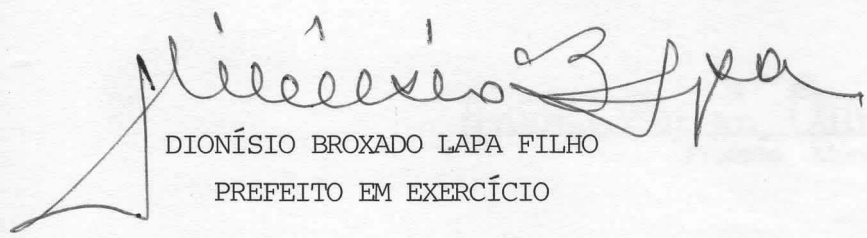 DIONÍSIO BROXADO LAPA FILHO
PREFEITO EM EXERCÍCIO